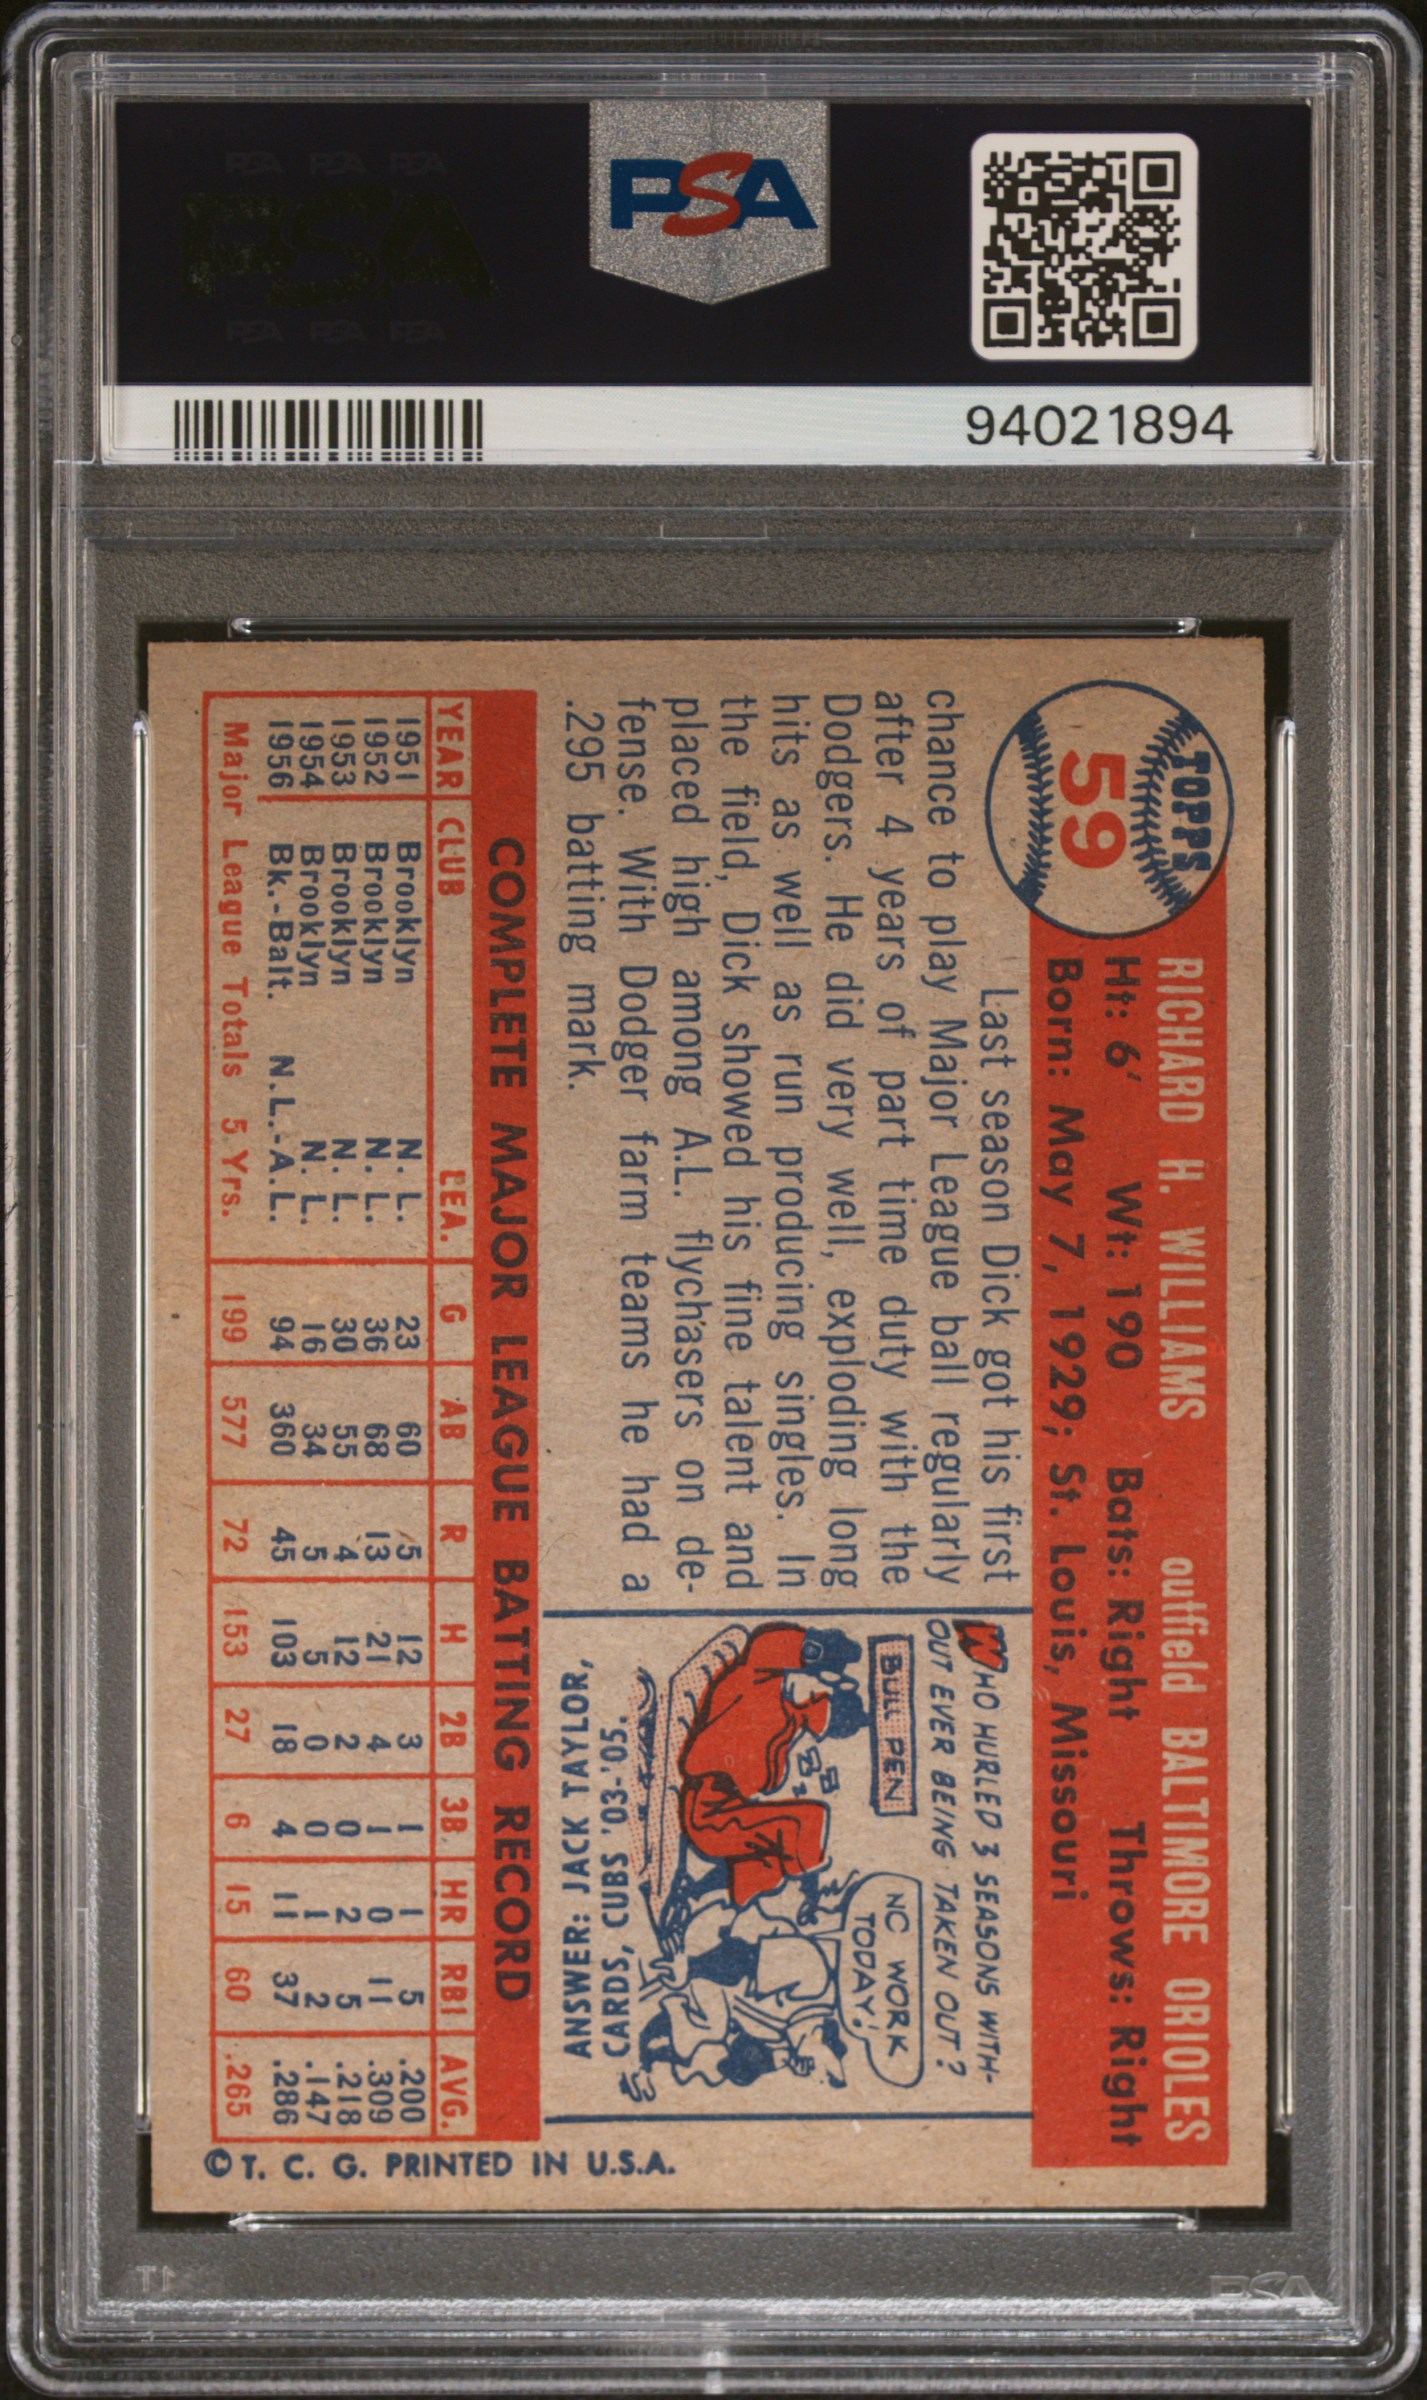 PSA PSA PSA
PSA
PSA PSA PSA
PSA
94021894
TOPPS
59
RICHARD H. WILLIAMS outfield BALTIMORE ORIOLES
Ht: 6' Wt: 190 Bats: Right Throws: Right
Born: May 7, 1929; St. Louis, Missouri
Last season Dick got his first
chance to play Major League ball regularly
after 4 years of part time duty with the
Dodgers. He did very well, exploding long
hits as well as run producing singles. In
the field, Dick showed his fine talent and
placed high among A.L. flychasers on de-
fense. With Dodger farm teams he had a
.295 batting mark.
WHO HURLED 3 SEASONS WITH-
OUT EVER BEING TAKEN OUT?
BULL PEN
ZZZ
NO WORK
TODAY!
ANSWER: JACK TAYLOR,
CARDS, CUBS '03-'05.
COMPLETE MAJOR LEAGUE BATTING RECORD
YEAR CLUB LEA. G AB R H 2B 3B HR RBI AVG.
1951 Brooklyn N. L. 23 60 5 12 3 1 1 5 .200
1952 Brooklyn N. L. 36 68 13 21 4 1 0 11 .309
1953 Brooklyn N. L. 30 55 4 12 2 0 2 5 .218
1954 Brooklyn N. L. 16 34 5 5 0 0 1 2 .147
1956 Bk.-Balt. N.L.-A.L. 94 360 45 103 18 4 11 37 .286
Major League Totals 5 Yrs. 199 577 72 153 27 6 15 60 .265
© T. C. G. PRINTED IN U.S.A.
PSA